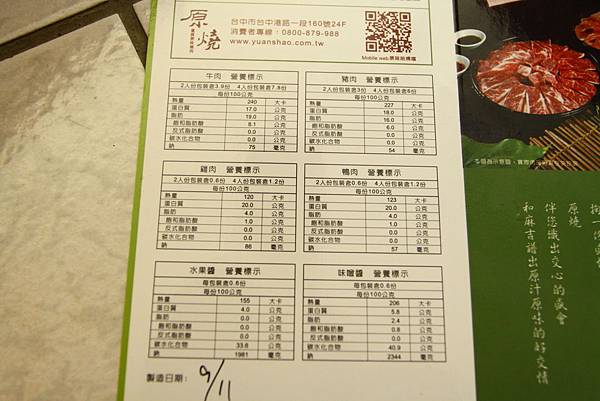 原
燒
優質原味燒肉
台中市台中港路一段160號24F
消費者專線：0800-879-988
www.yuanshao.com.tw
牛肉 營養標示
2人份包裝含3.9份 4人份包裝含7.8份
每份100公克
熱量 240 大卡
蛋白質 17.0 公克
脂肪 19.0 公克
飽和脂肪酸 8.1 公克
反式脂肪酸 0.0 公克
碳水化合物 0.0 公克
鈉 75 毫克
豬肉 營養標示
2人份包裝含3份 4人份包裝含6份
每份100公克
熱量 227 大卡
蛋白質 18.0 公克
脂肪 16.0 公克
飽和脂肪酸 6.0 公克
反式脂肪酸 0.0 公克
碳水化合物 0.0 公克
鈉 54 毫克
雞肉 營養標示
2人份包裝含0.6份 4人份包裝含1.2份
每份100公克
熱量 120 大卡
蛋白質 20.0 公克
脂肪 4.0 公克
飽和脂肪酸 1.0 公克
反式脂肪酸 0.0 公克
碳水化合物 0.0 公克
鈉 86 毫克
鴨肉 營養標示
2人份包裝含0.6份 4人份包裝含1.2份
每份100公克
熱量 123 大卡
蛋白質 20.0 公克
脂肪 4.0 公克
飽和脂肪酸 1.0 公克
反式脂肪酸 0.0 公克
碳水化合物 0.0 公克
鈉 57 毫克
水果醬 營養標示
每包裝含0.6份
每份100公克
熱量 155 大卡
蛋白質 4.0 公克
脂肪 0.0 公克
飽和脂肪酸 0.0 公克
反式脂肪酸 0.0 公克
碳水化合物 33.6 公克
鈉 1981 毫克
味噌醬 營養標示
每包裝含0.6份
每份100公克
熱量 206 大卡
蛋白質 5.8 公克
脂肪 2.4 公克
飽和脂肪酸 0.8 公克
反式脂肪酸 0.0 公克
碳水化合物 40.9 公克
鈉 2344 毫克
製造日期： 9/11
原燒
伴您識出交心的盛會
和麻吉譜出原汁原味的好交情